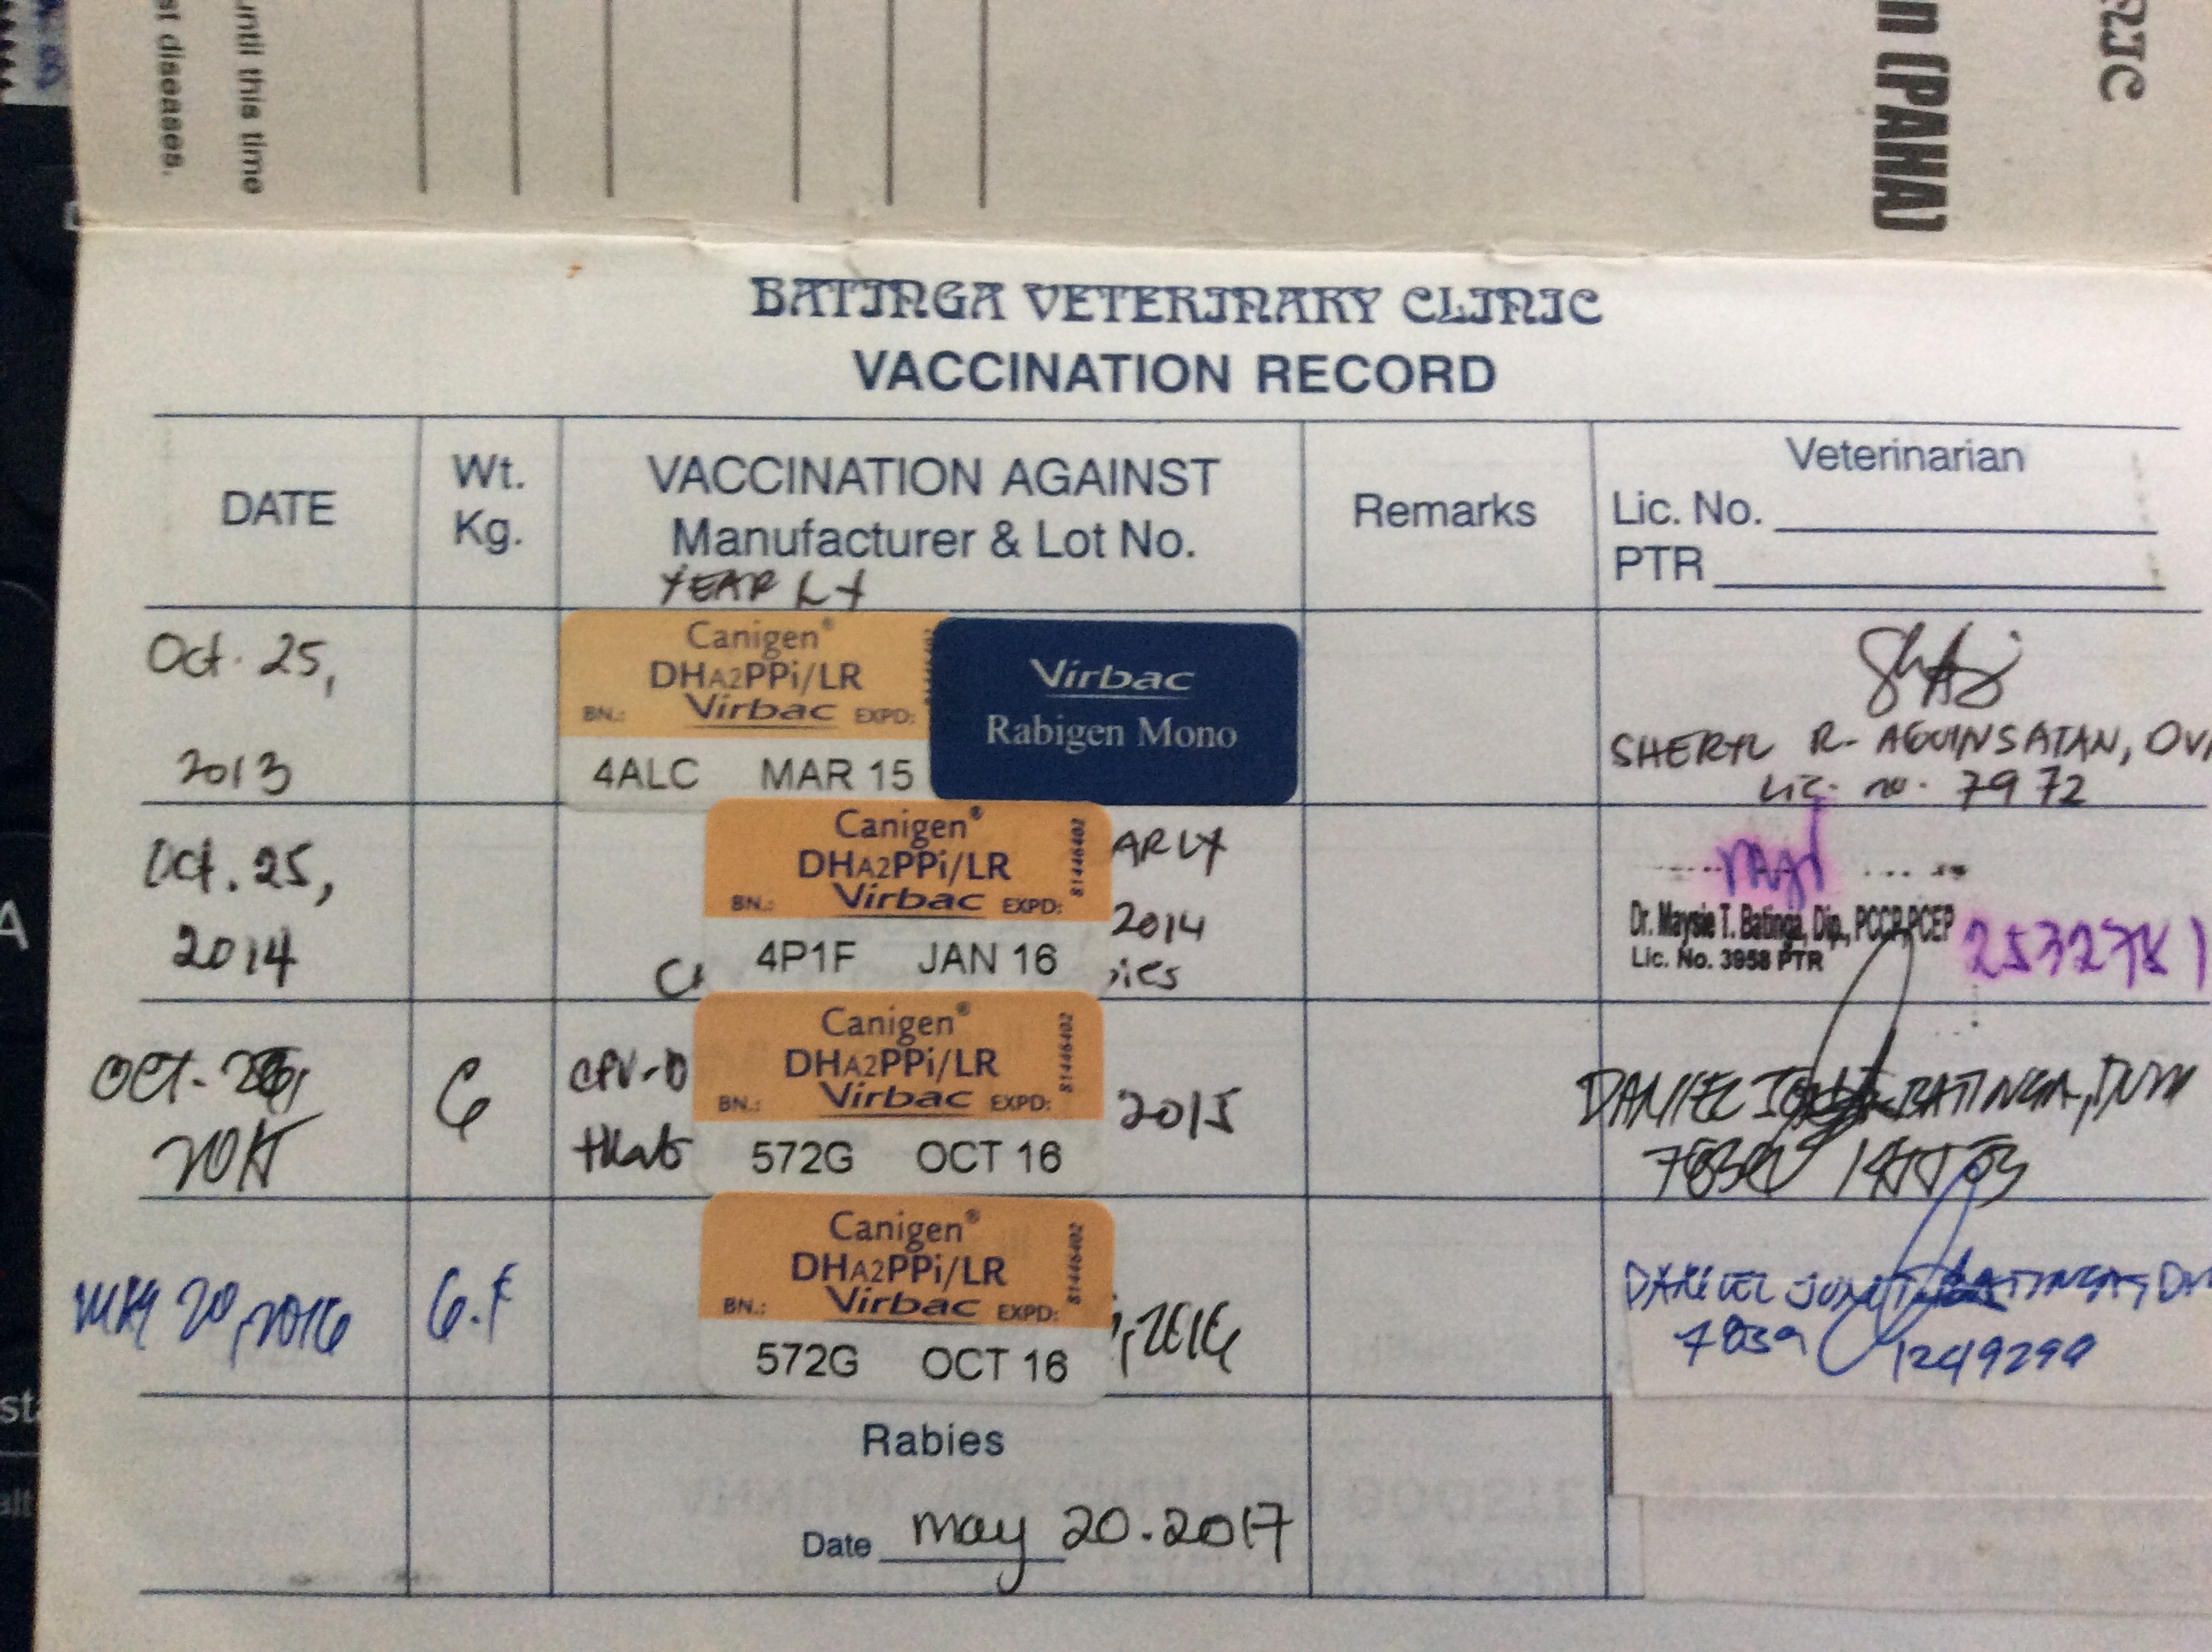 until this time
st diseases.
n (PAHA)
NIC
BATINGA VETERINARY CLINIC
VACCINATION RECORD
DATE
Wt.
Kg.
VACCINATION AGAINST
Manufacturer & Lot No.
Remarks
Veterinarian
Lic. No.
PTR
YEARLY
Oct. 25,
2013
Canigen®
DHA2PPi/LR
BN.: Virbac EXPD:
4ALC MAR 15
Virbac
Rabigen Mono
SHERYL R. AGUINSATAN, DV
Lic. no. 7972
Oct. 25,
2014
Canigen®
DHA2PPi/LR
81446402
BN.: Virbac EXPD:
4P1F JAN 16
ARLY
2014
ies
Dr. Maysie T. Batinga, Dip., PCCP, PCEP
Lic. No. 3958 PTR
2532781
OCT.
6
Canigen®
DHA2PPi/LR
81446402
BN.: Virbac EXPD:
572G OCT 16
2015
DANIEL BATINGA, DVM
MAY 20, 2016
Canigen®
DHA2PPi/LR
81446402
BN.: Virbac EXPD:
572G OCT 16
, 2016
DANIEL BATINGA, DV
7839 1249299
Rabies
Date may 20. 2017